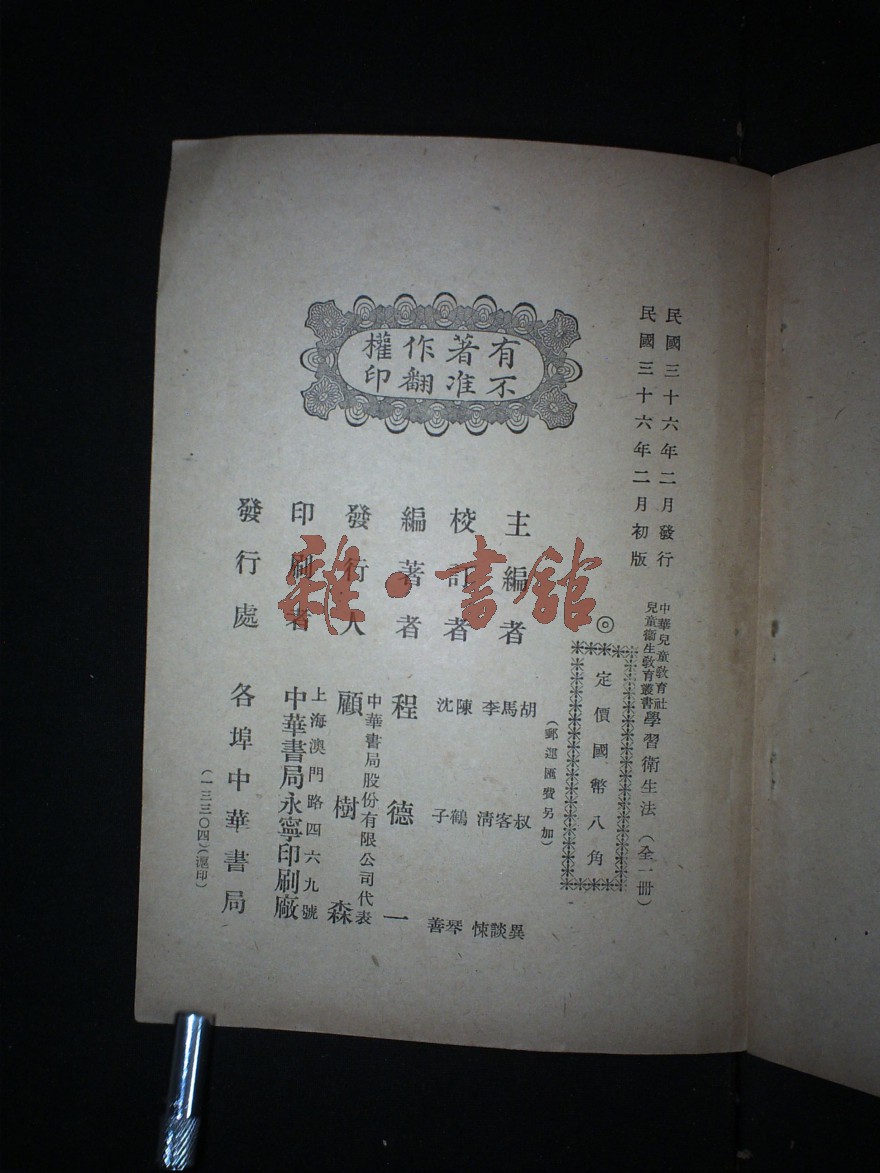 民國三十六年二月發行
民國三十六年二月初版
中華兒童教育社
兒童衞生教育叢書
學習衞生法(全一册)
◎定價國幣八角
(郵運匯費另加)
有著作權
不准翻印
主編者 胡叔異
馬客談
李清悚
校訂者 陳鶴琴
沈子善
編著者 程德一
發行人 中華書局股份有限公司代表
顧樹森
印刷者 上海澳門路四六九號
中華書局永寧印刷廠
發行處 各埠中華書局
(一三三〇四)(滬印)
雜·書館